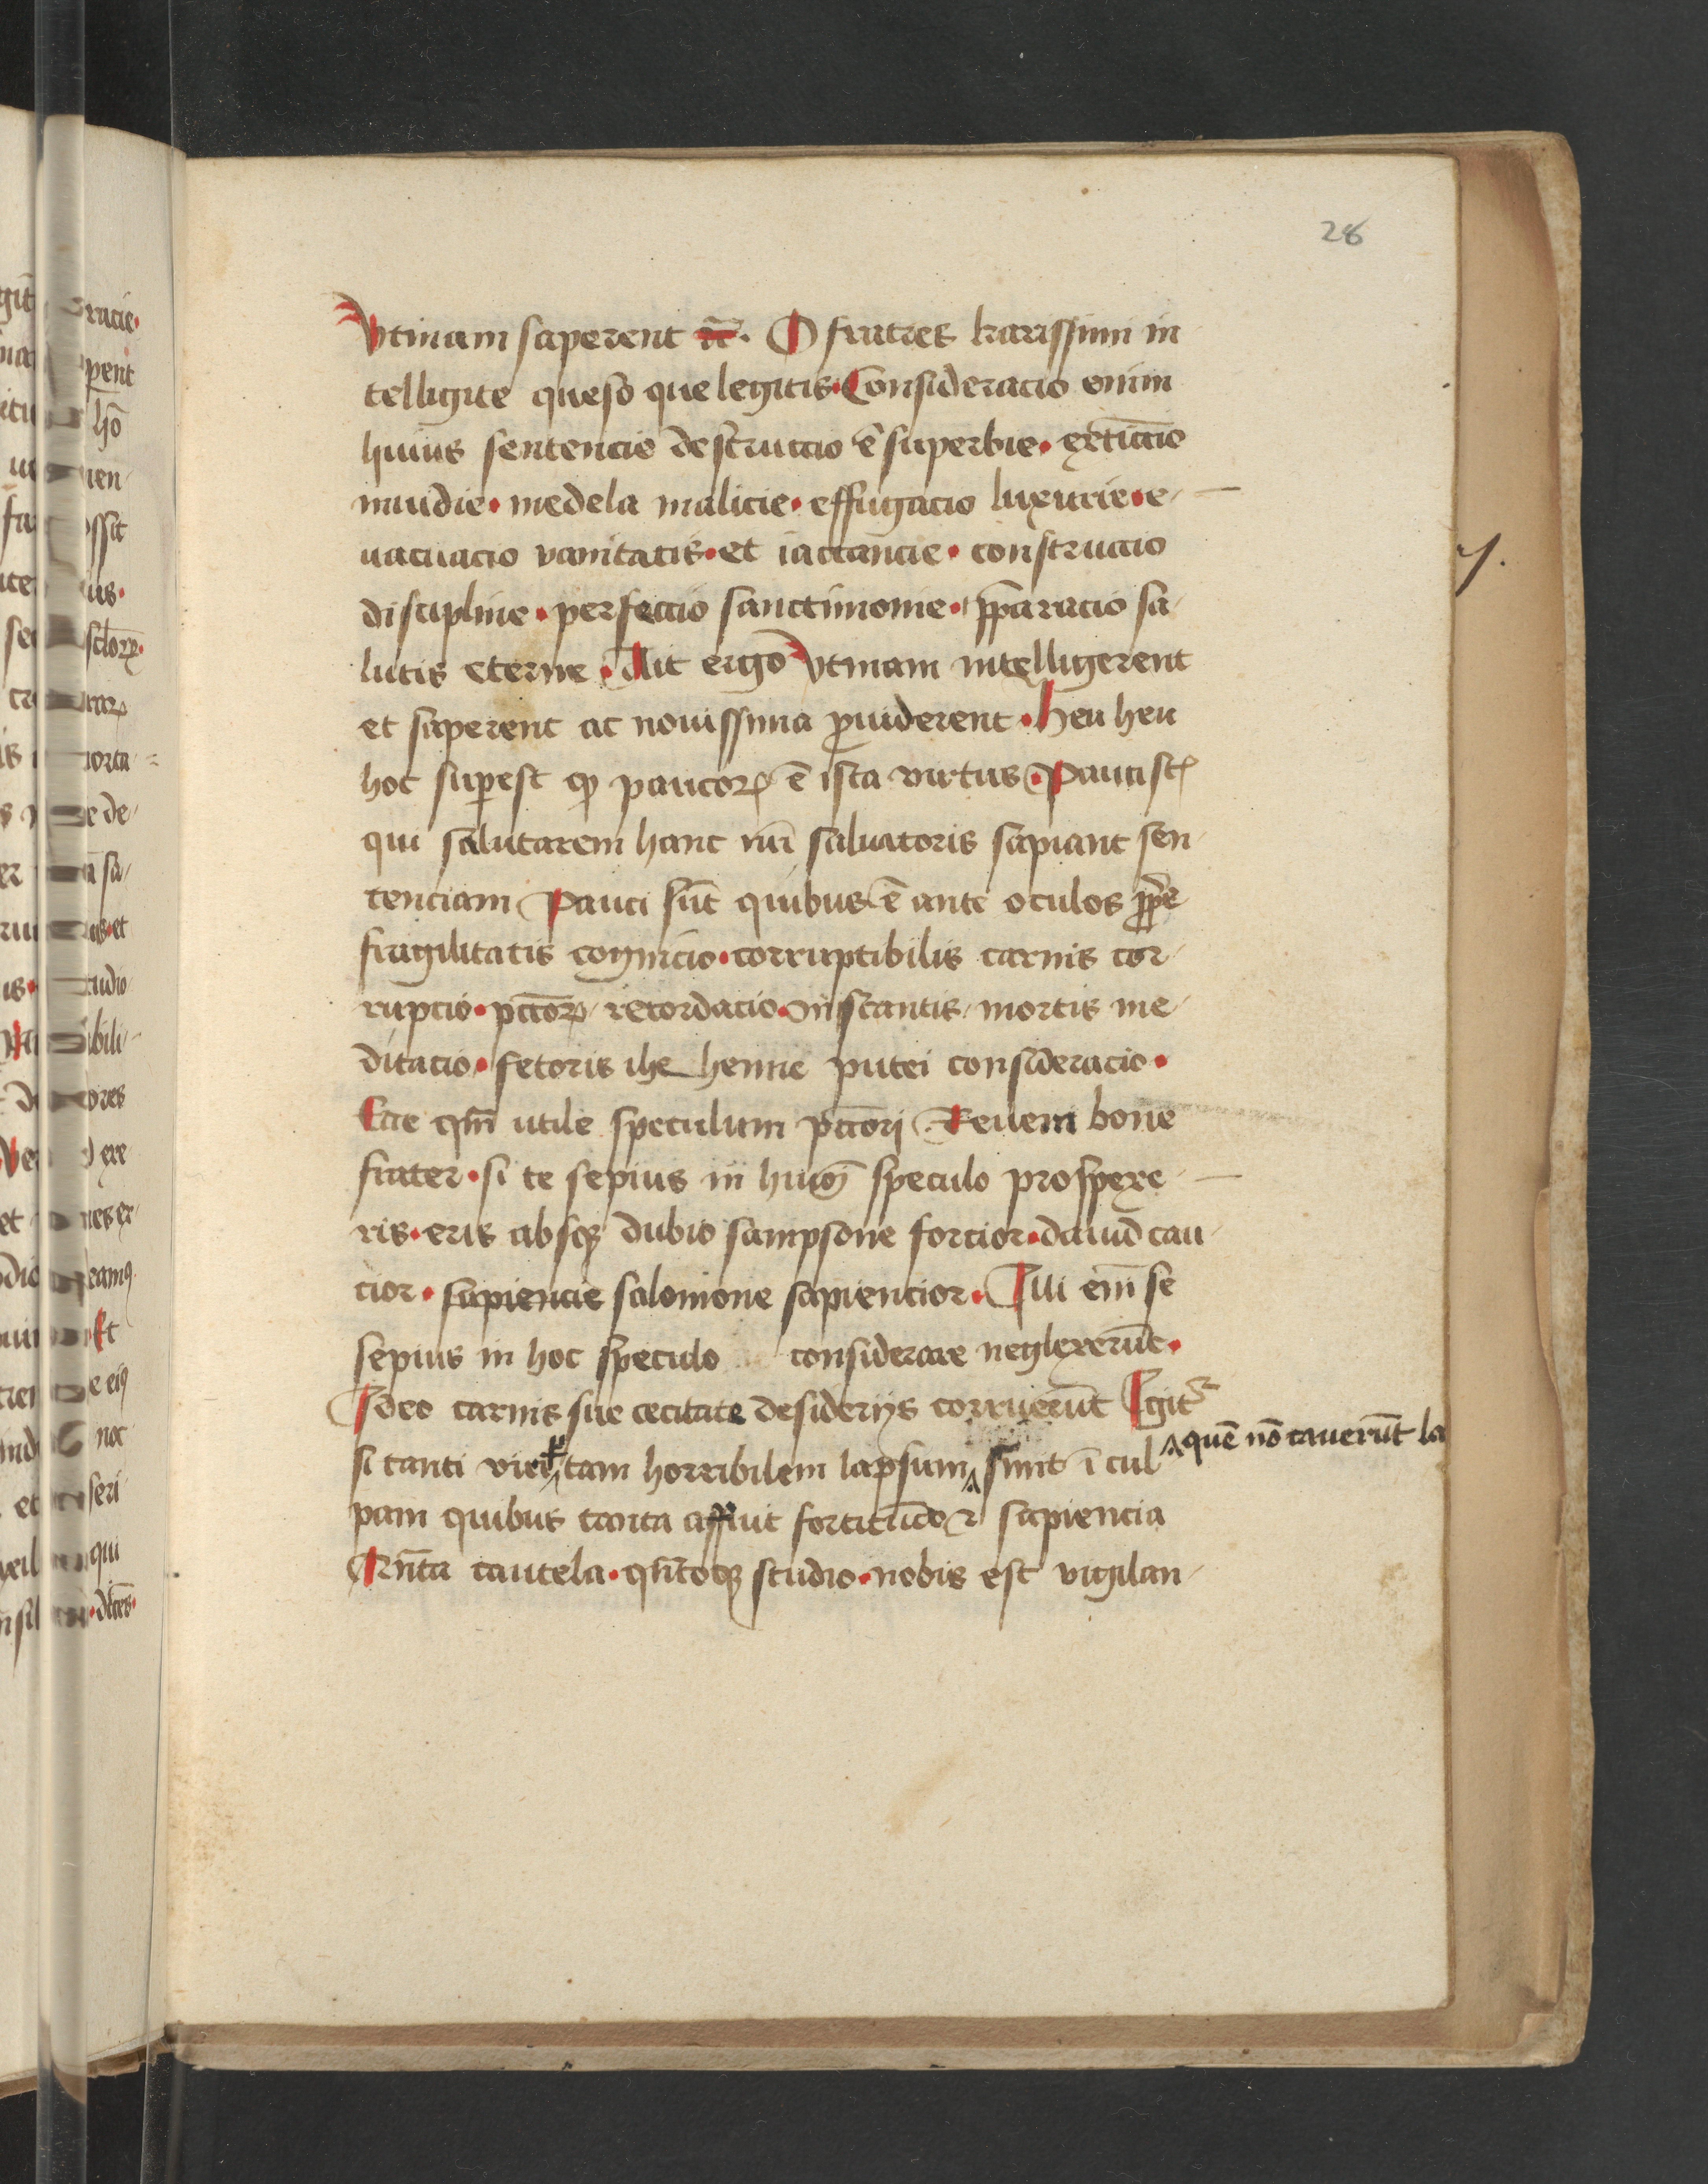 28
Vtinam saperent ⁊c̄. O fratres karissimi in
telligite queso que legitis. Consideracio enim
huius sentencie destruccio ē superbie. extinccio
inuidie. medela malicie. effugacio luxurie. e-
uacuacio vanitatis. et iactancie. construccio
discipline. perfeccio sanctimonie. p̄paracio sa-
lutis eterne. Ait ergo Vtinam intelligerent
et saperent ac nouissima ꝓuiderent. Heu heu
hoc superest qꝫ paucoꝝ ē ista virtus. Pauci st̄
qui salutarem hanc nr̄i saluatoris sapiant sen-
tenciam Pauci sūt quibus ē ante oculos ꝓp̄e
fragilitatis cognicio. corruptibilis carnis cor-
rupcio. pctōꝝ recordacio. instantis mortis me-
ditacio. fetoris ihehenne putei consideracio.
Ecce qm̄ utile speculum pctōrj. Reuera bone
frater. si te sepius in huiꝰ speculo prospexe-
ris. eris absqꝫ dubio sampsone forcior. dauid cau-
cior. sapiencie salomone sapiencior. Illi em̄ se
sepius in hoc speculo considerare neglexerūt.
Ideo carnis sue cecitate desiderijs corruerūt Igitr
si tanti viri tam horribilem lapsum sunt ī cul
quē nō cauerūt la
pam quibus tanta affuit fortitudo ⁊ sapiencia
Qn̄ta cautela. qn̄toqꝫ studio. nobis est vigilan-